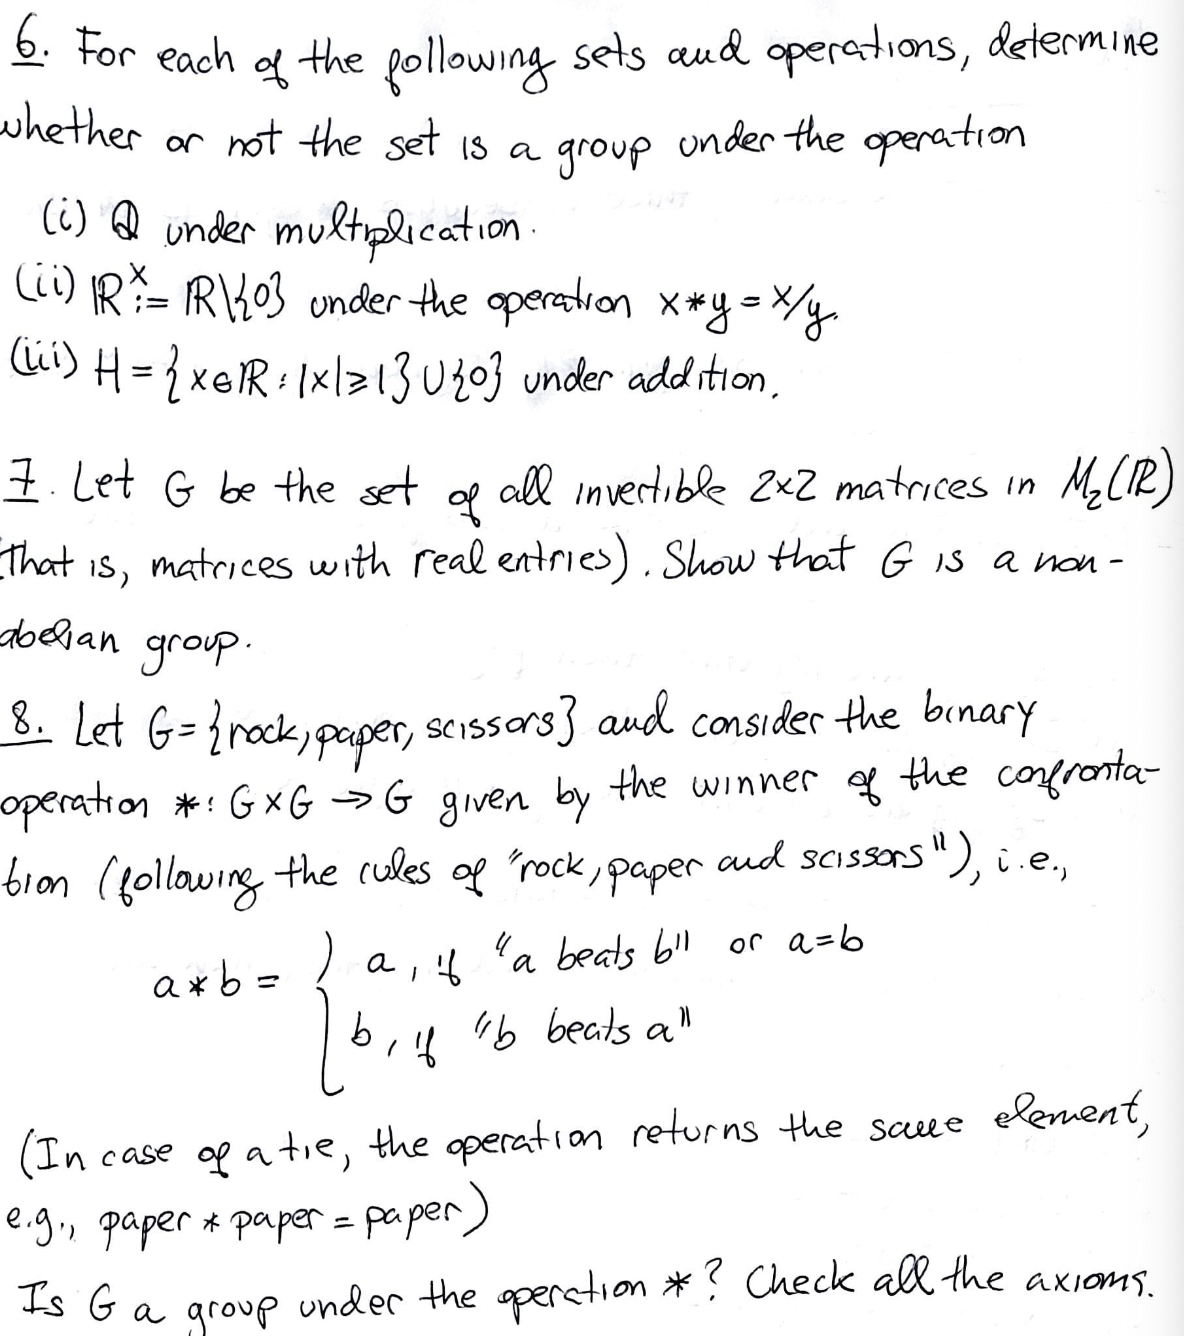 6. For each of the following sets and operations, determine
whether or not the set is a group under the operation
(i) ℚ under multiplication.
(ii) ℝ^× := ℝ\{0} under the operation x*y = x/y.
(iii) H = {x∈ℝ : |x|≥1} ∪ {0} under addition.
7. Let G be the set of all invertible 2x2 matrices in M₂(ℝ)
(That is, matrices with real entries). Show that G is a non-
abelian group.
8. Let G = {rock, paper, scissors} and consider the binary
operation *: G×G → G given by the winner of the confronta-
tion (following the rules of "rock, paper and scissors"), i.e.,
a, if "a beats b" or a=b
a*b = {
b, if "b beats a"
(In case of a tie, the operation returns the same element,
e.g., paper * paper = paper)
Is G a group under the operation *? Check all the axioms.